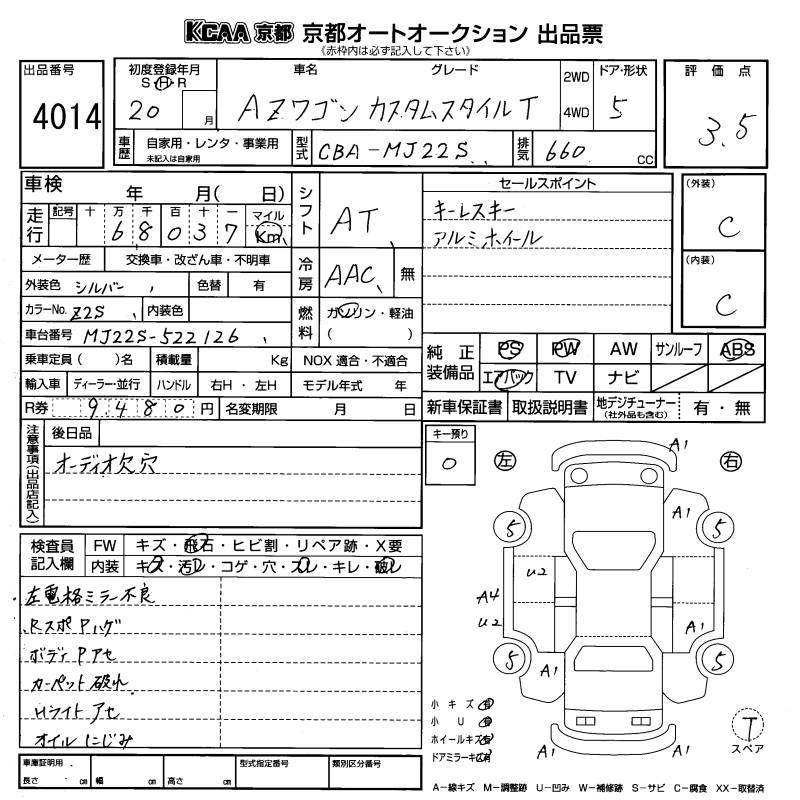 KCAA 京都 京都オートオークション 出品票
(赤枠内は必ず記入して下さい)
出品番号 4014
初度登録年月 S・H・R 20 月
車名 グレード AZワゴン カスタムスタイルT
2WD 4WD
ドア・形状 5
評価点 3.5
車歴 自家用・レンタ・事業用 未記入は自家用
型式 CBA-MJ22S
排気 660 CC
車検 年 月( 日)
走行 記号 十 万 千 百 十 一 マイル Km
6 8 0 3 7
メーター歴 交換車・改ざん車・不明車
外装色 シルバー 色替 有
カラーNo. Z2S 内装色
車台番号 MJ22S-522126
乗車定員( )名 積載量 Kg NOX 適合・不適合
輸入車 ディーラー・並行 ハンドル 右H・左H モデル年式 年
R券 9480円 名変期限 月 日
シフト AT
冷房 AAC 無
燃料 ガソリン・軽油
( )
セールスポイント
キーレスキー
アルミホイール
(外装) C
(内装) C
純正装備品 PS PW AW サンルーフ ABS
エアバック TV ナビ
新車保証書 取扱説明書 地デジチューナー (社外品も含む) 有・無
注意事項(出品店記入) 後日品
オーディオ欠穴
キー預り 0
左 右
検査員記入欄 FW キズ・飛石・ヒビ割・リペア跡・X要
内装 キズ・汚レ・コゲ・穴・スレ・キレ・破レ
左電格ミラー不良
RスポPハゲ
ボディPアセ
カーペット破れ
Hライトアセ
オイルにじみ
A1
A1
5 5
U2
A4
U2
A1
5 5
A1 A1
A1 A1
小キズ 有
小U 有
ホイールキズ 有
ドアミラーキズ 有
T
スペア
車庫証明用 長さ cm 幅 cm 高さ cm 型式指定番号 類別区分番号
A-線キズ M-調整跡 U-凹み W-補修跡 S-サビ C-腐食 XX-取替済